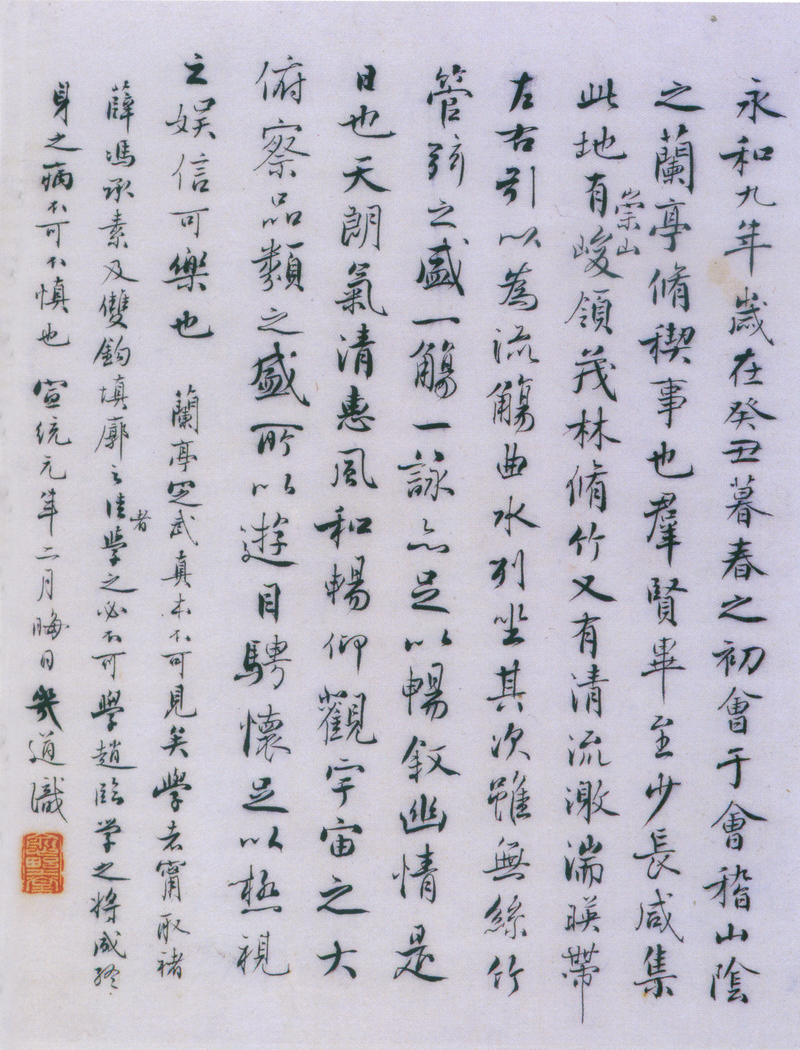 永和九年歲在癸丑暮春之初會于會稽山陰
之蘭亭脩稧事也羣賢畢至少長咸集
此地有崇山峻領茂林脩竹又有清流激湍暎帶
左右引以為流觴曲水列坐其次雖無絲竹
管弦之盛一觴一詠亦足以暢敘幽情是
日也天朗氣清惠風和暢仰觀宇宙之大
俯察品類之盛所以遊目騁懷足以極視
之娛信可樂也
蘭亭定武真本不可見矣學者甯取褚
薛馮承素及雙鉤填廓之佳者學之必不可學趙臨學之將成終
身之病不可不慎也 宣統元年二月晦日幾道識